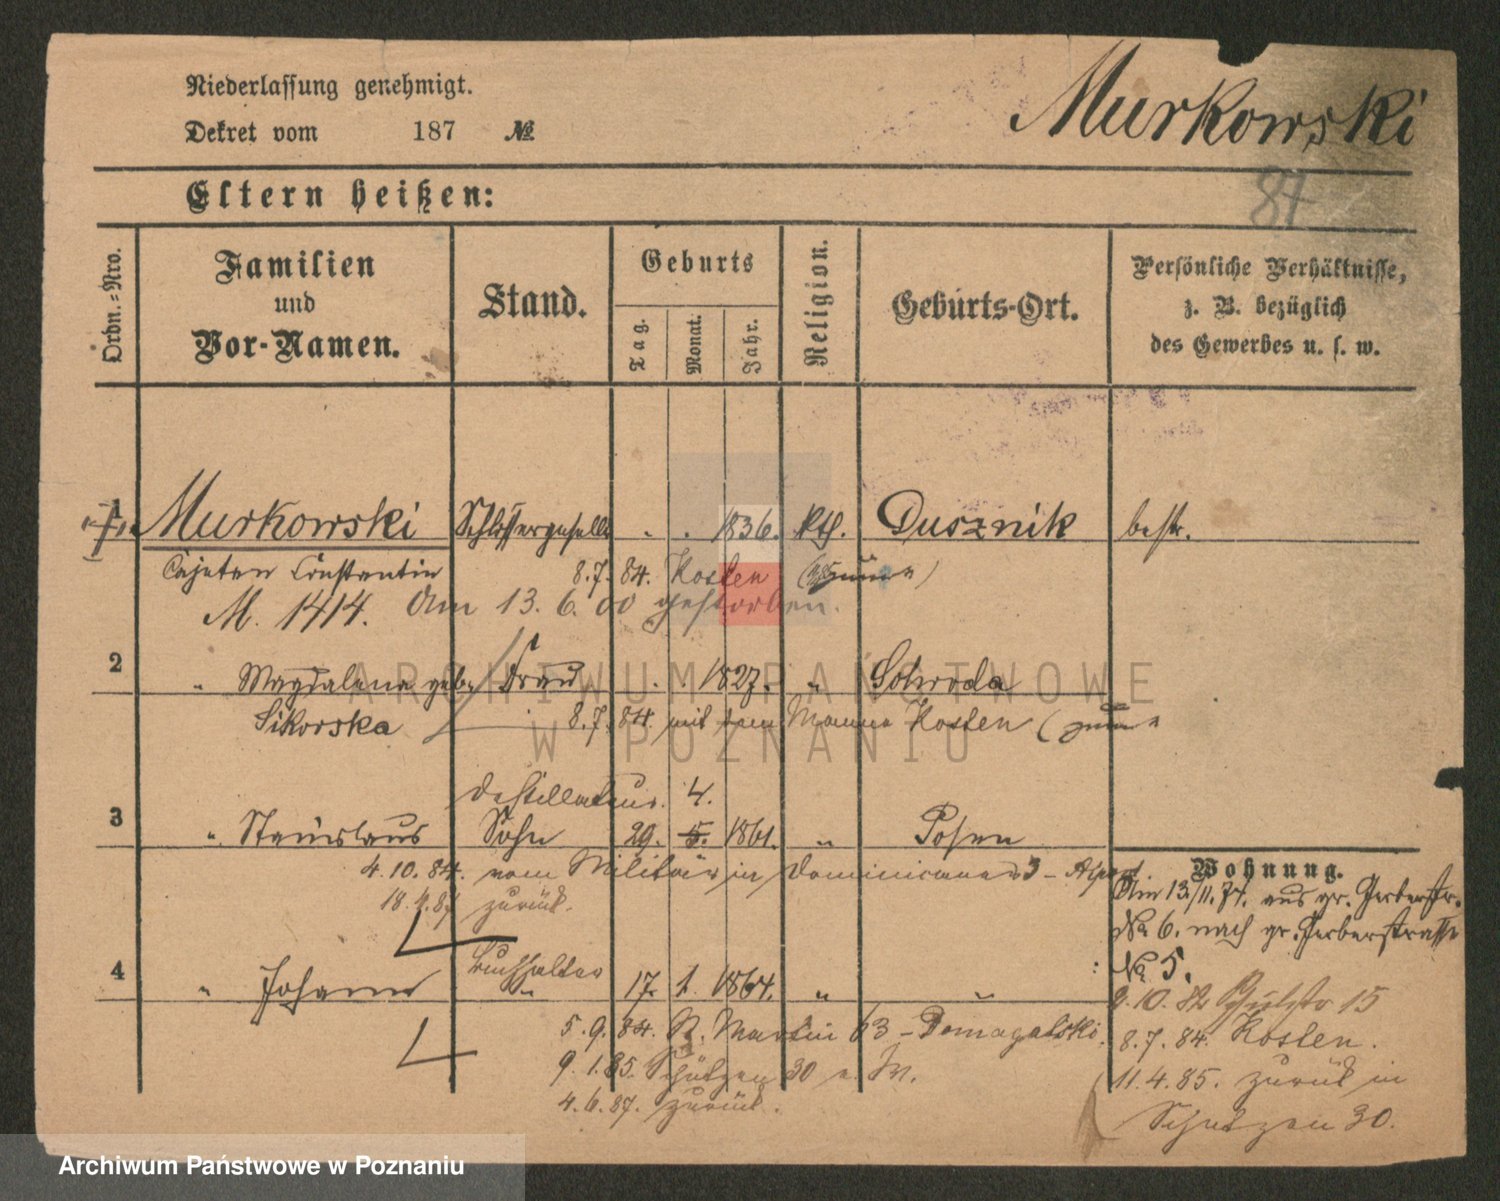 Niederlassung genehmigt.
Dekret vom 187 №
Murkowski
87
Eltern heißen:
Ordn.-Nro.
Familien und Vor-Namen.
Stand.
Geburts
Tag.
Monat.
Jahr.
Religion.
Geburts-Ort.
Persönliche Verhältnisse,
z. B. bezüglich
des Gewerbes u. s. w.
1 Murkowski Schlossergeselle . . 1836. Kth. Dusznik bestr.
Cajetan Constantin 8.7.84. Kosten
M. 1414. Am 13.6.00 gestorben.
2 " Magdalena geb. Frau . . 1827. " Schroda
Sikorska 8.7.84. mit dem Manne Kosten
Destillateur. 4.
3 " Stanislaus Sohn 29. 5. 1861. " Posen
4.10.84. vom Militär in Dominicaner 3
zurück.
Buchhalter
4 " Johann " 17. 1. 1864. " "
5.9.84. St. Martin 63 - Domagalski.
9.1.85. Schützen 30 z. M.
4.6.87. zurück.
Wohnung.
Am 13/11.74. aus gr. Gerberstr.
No 6. nach gr. Gerberstrasse
No 5.
9.10.82 15
8.7.84. Kosten.
11.4.85. zurück in
Schützen 30.
ARCHIWUM PAŃSTWOWE
W POZNANIU
Archiwum Państwowe w Poznaniu